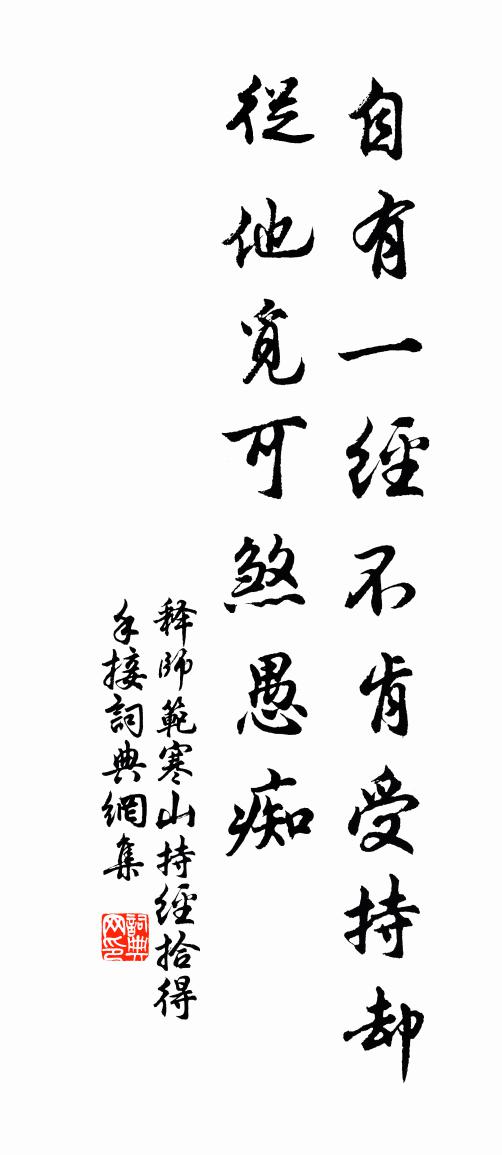 自有一經不肯受持却
從他覓可煞愚痴
释師範寒山持經拾得
手接詞典網集
詞典网印